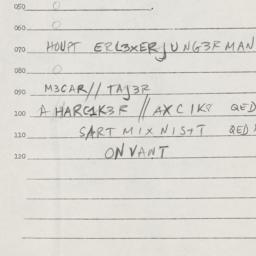 050
060
070 HOUPT ERL3XERJUNG3RMAN
080
090 M3GAR// TAJ3R
100 A HARG1K3R // AXCIK8 QED
110 SART MIXNIS+T QED
120 ONVANT